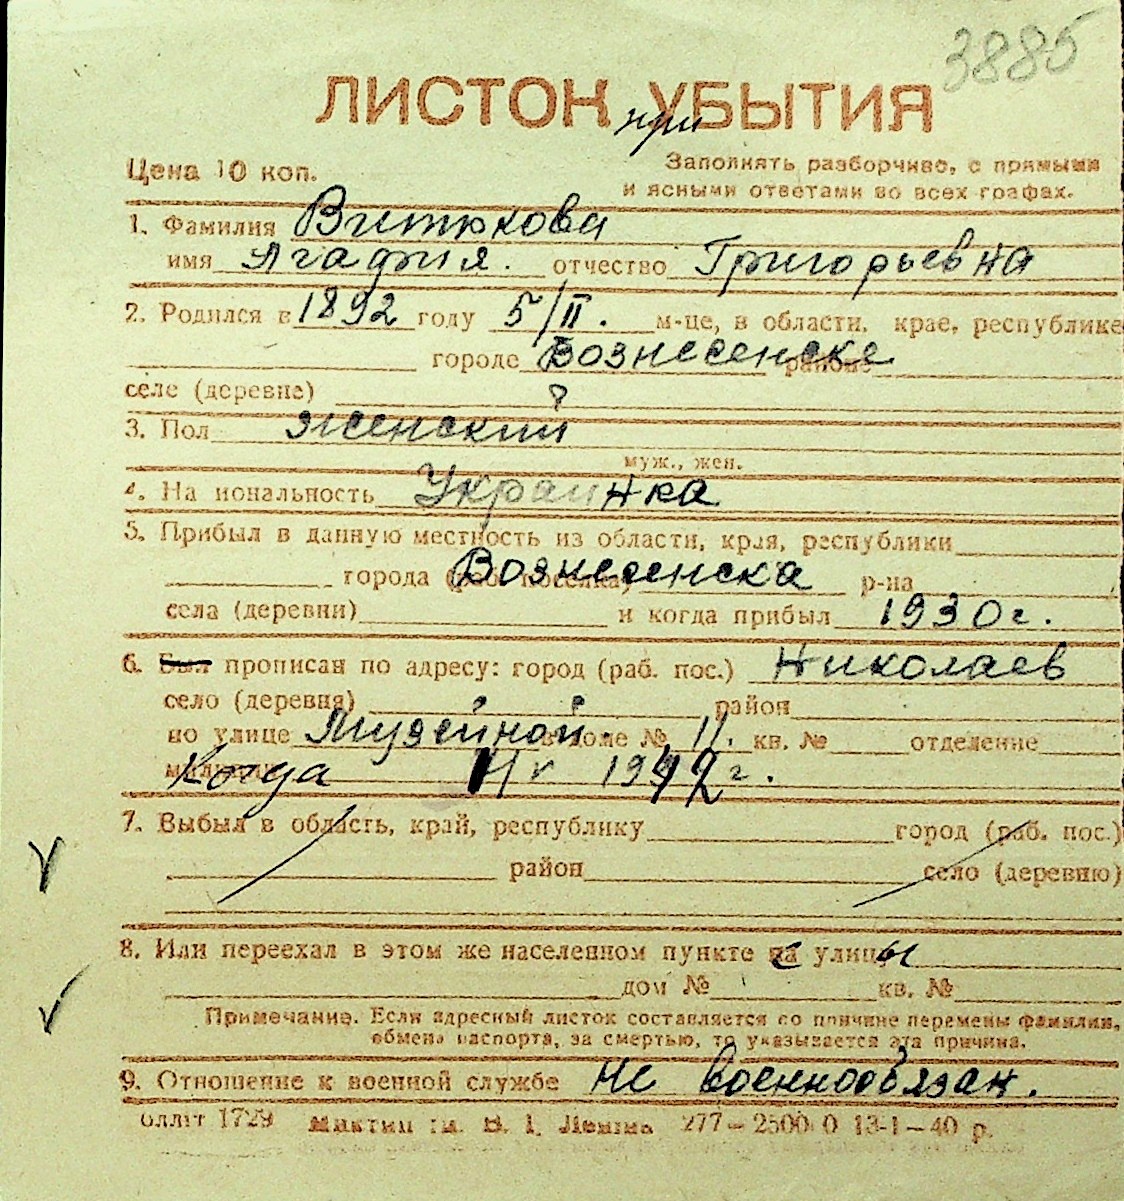 3885
ЛИСТОК УБЫТИЯ
при
Цена 10 коп.
Заполнять разборчиво, с прямыми
и ясными ответами во всех графах.
1. Фамилия Витюкова
имя Агафия. отчество Григорьевна
2. Родился в 1892 году 5/II. м-це, в области, крае, республике
городе Вознесенске районе
селе (деревне)
3. Пол женский
муж., жен.
4. На иональность Украинка
5. Прибыл в данную местность из области, края, республики
города Вознесенска р-на
села (деревни) и когда прибыл 1930 г.
6. Был прописан по адресу: город (раб. пос.) Николаев
село (деревня) район
по улице Музейной. в доме № 11. кв. № отделение
Когда 1942 г.
7. Выбыл в область, край, республику город (раб. пос.)
район село (деревню)
8. Или переехал в этом же населенном пункте с улицы
дом № кв. №
Примечание. Если адресный листок составляется по причине перемены фамилии,
обмена паспорта, за смертью, то указывается эта причина.
9. Отношение к военной службе Не военнообязан.
1729 им. В. І. Леніна 277—2500 0 13-1—40 р.